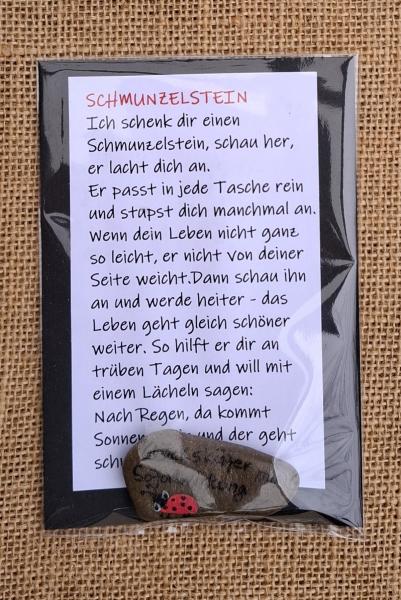 SCHMUNZELSTEIN
Ich schenk dir einen
Schmunzelstein, schau her,
er lacht dich an.
Er passt in jede Tasche rein
und stupst dich manchmal an.
Wenn dein Leben nicht ganz
so leicht, er nicht von deiner
Seite weicht.Dann schau ihn
an und werde heiter - das
Leben geht gleich schöner
weiter. So hilft er dir an
trüben Tagen und will mit
einem Lächeln sagen:
Nach Regen, da kommt
Sonnen und der geht